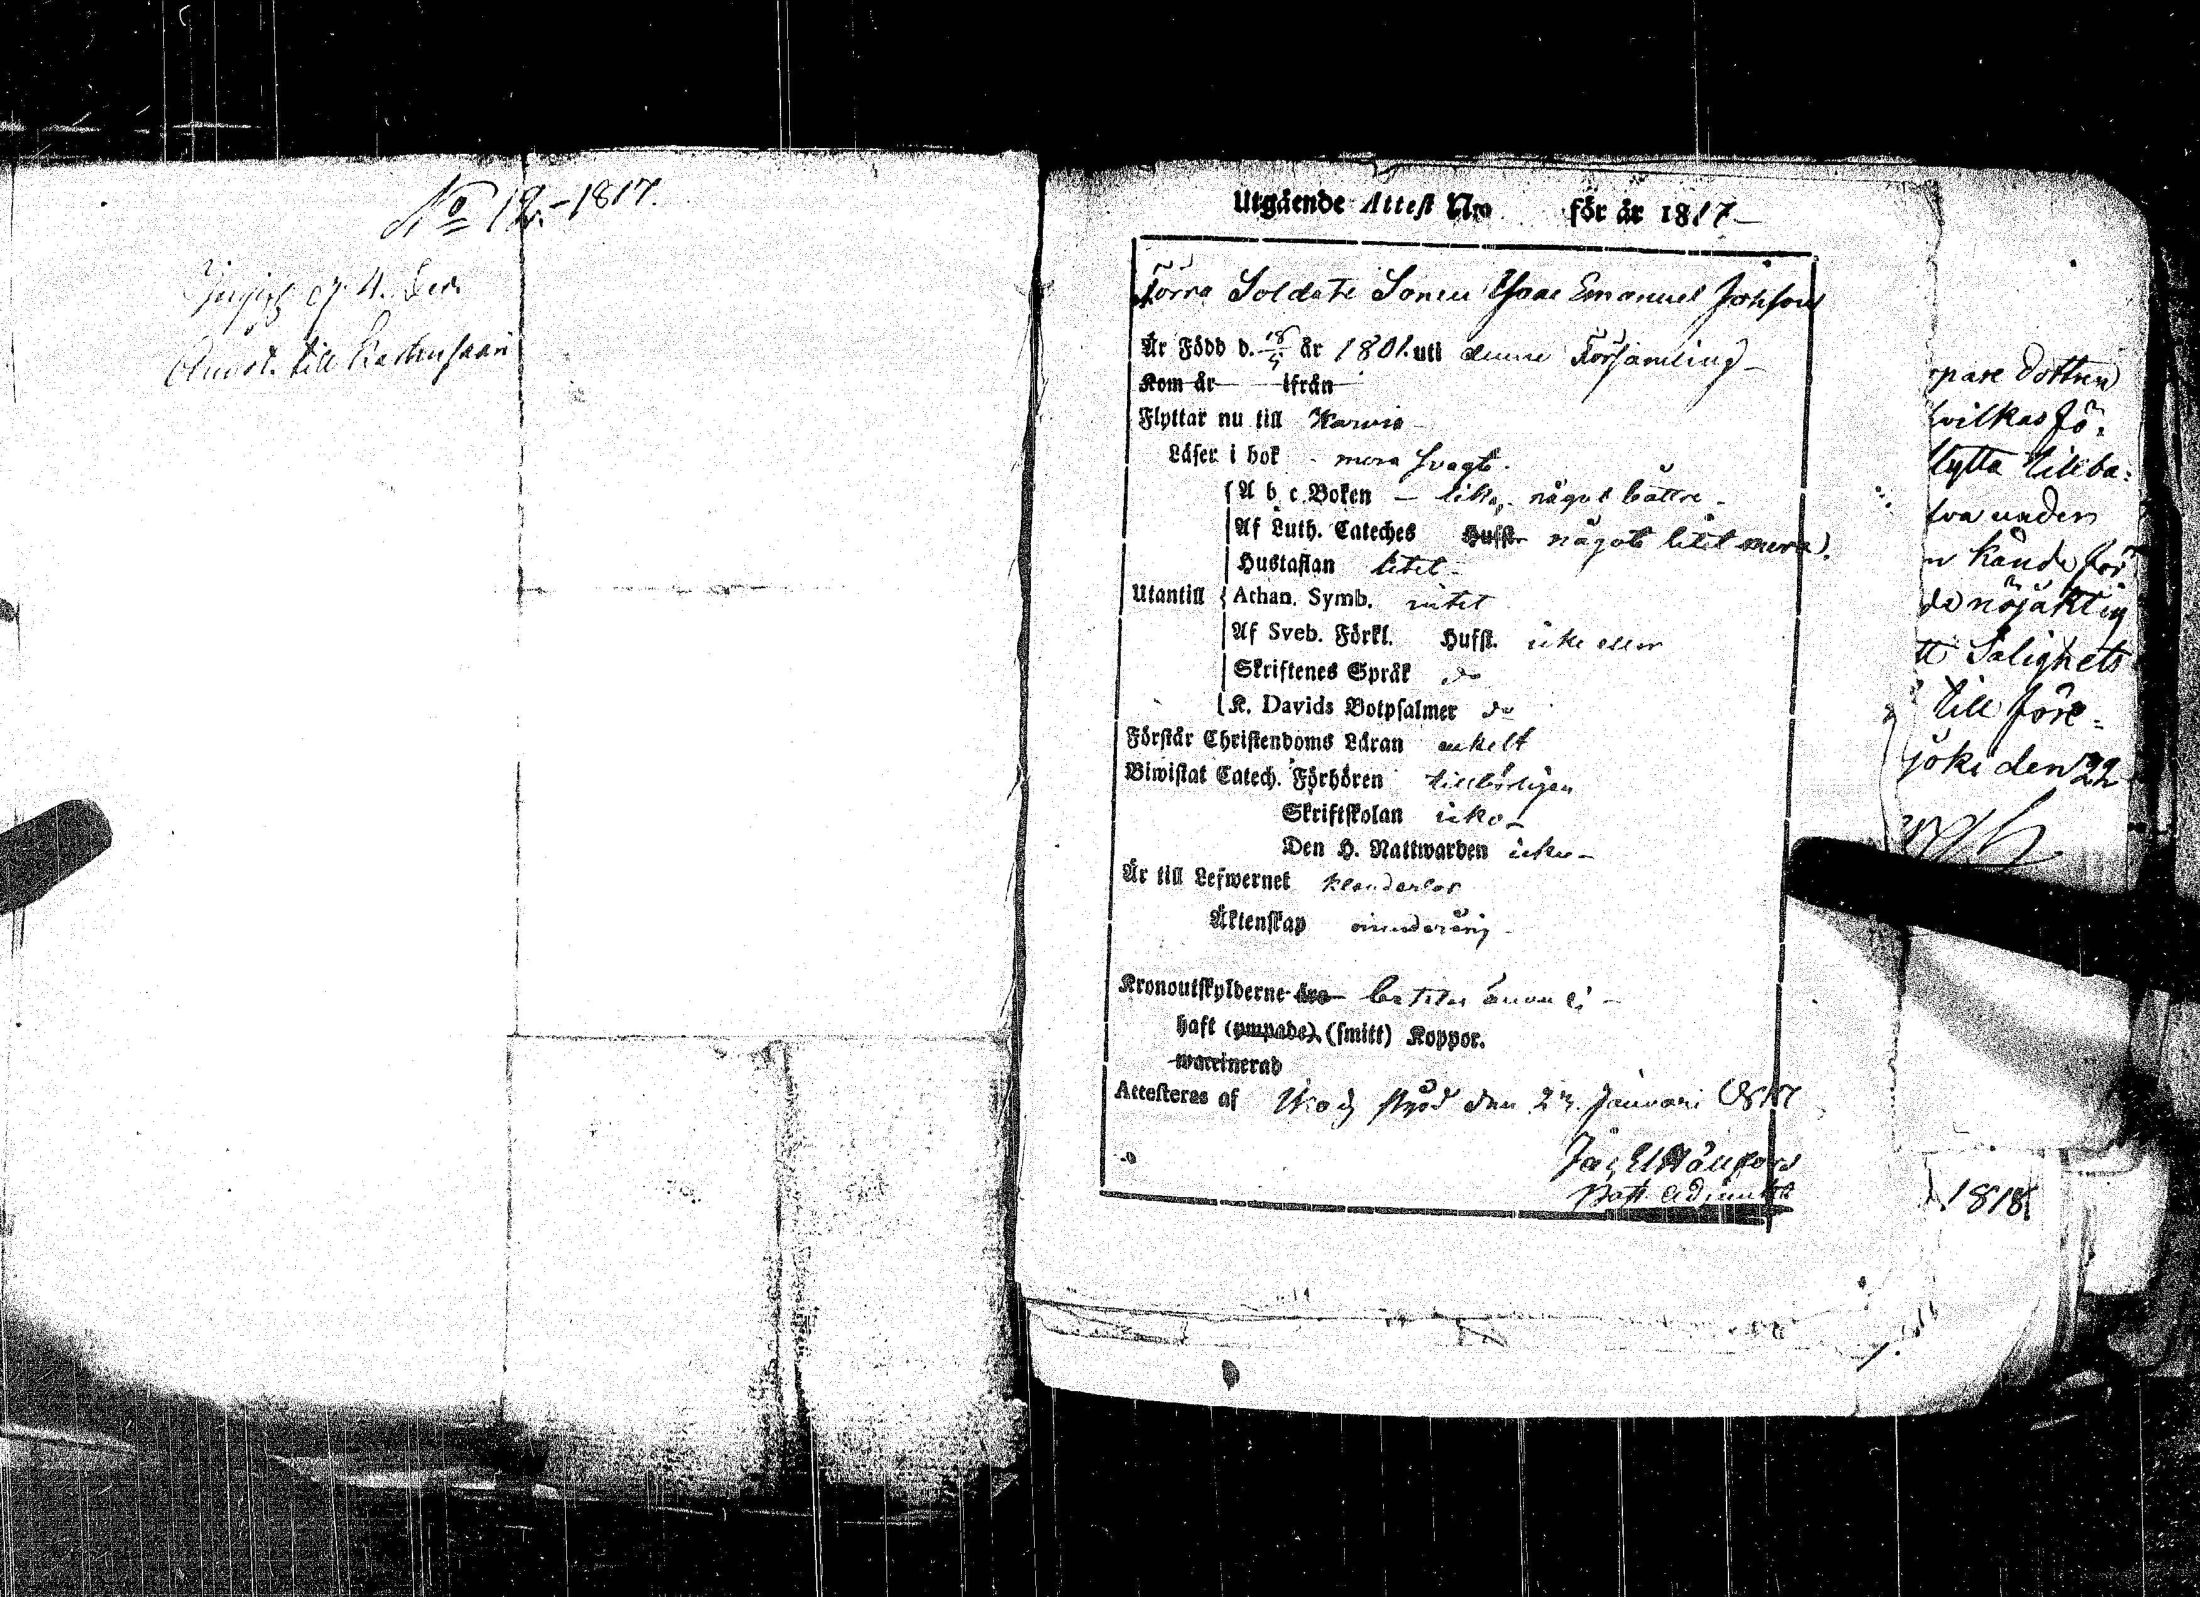 No 12. - 1817.
till
Utgående Attest No för år 1817
Förra Soldate Sonen Isaac Emanuel Johsson
Är Född d. 18/4 år 1801. uti denne Församling
Kom år ifrån
Flyttar nu till Karvia
Läser i bok mera svagt.
A b c Boken - lika, något bättre
Af Luth. Cateches Hufst. något litet mera.
Hustaflan litet
Utantill Athan. Symb. intet
Af Sveb. Förkl. Hufst. icke eller
Skriftenes Språk do
K. Davids Botpsalmer do
Förstår Christendoms Läran enkelt
Biwistat Catech. Förhören tillbörligen
Skriftskolan icke
Den H. Nattwarden icke
Är till Lefwernet klanderlös
Äktenskap minderårig
Kronoutskylderne äro betalar ännu ej
haft (ympade) (smitt) Koppor.
waccinerad
Attesteras af den 23. Januari 1817
Adjunkt
pare dottren
hvilkas fö-
flytta tillba-
under
kände för
nöjaktig
tt Salighets
till före-
joki den 22
1818